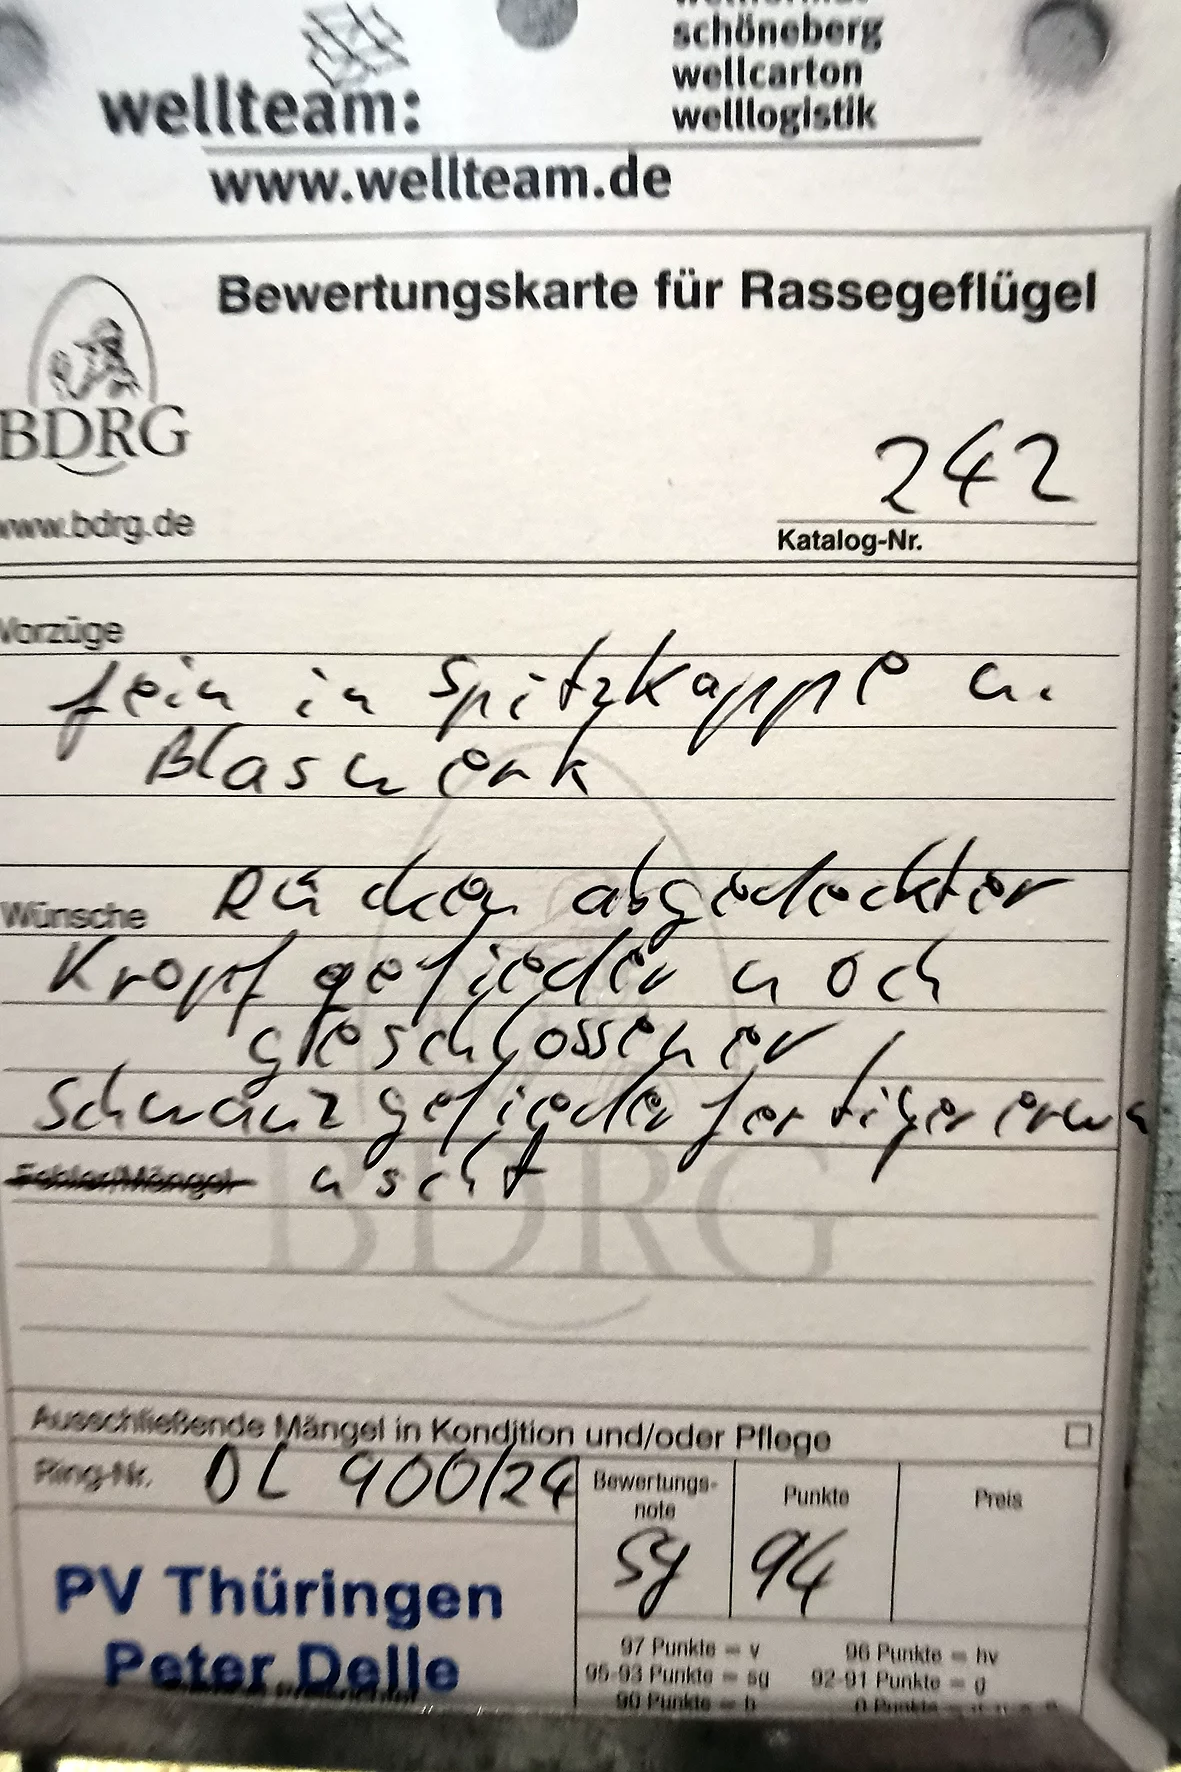 wellteam:
schöneberg
wellcarton
welllogistik
www.wellteam.de
Bewertungskarte für Rassegeflügel
BDRG
www.bdrg.de
242
Katalog-Nr.
Vorzüge
fein in Spitzkappe u.
Blaswerk
Wünsche Rücken abgedeckter
Kropfgefieder noch
geschlossener
Schwanzgefieder fertiger erwü
Fehler/Mängel nscht
BDRG
Ausschließende Mängel in Kondition und/oder Pflege
Ring-Nr. DL 900/24
Bewertungs-
note
Punkte
Preis
sg 94
PV Thüringen
Peter Delle
97 Punkte = v 96 Punkte = hv
95-93 Punkte = sg 92-91 Punkte = g
90 Punkte = b 0 Punkte =